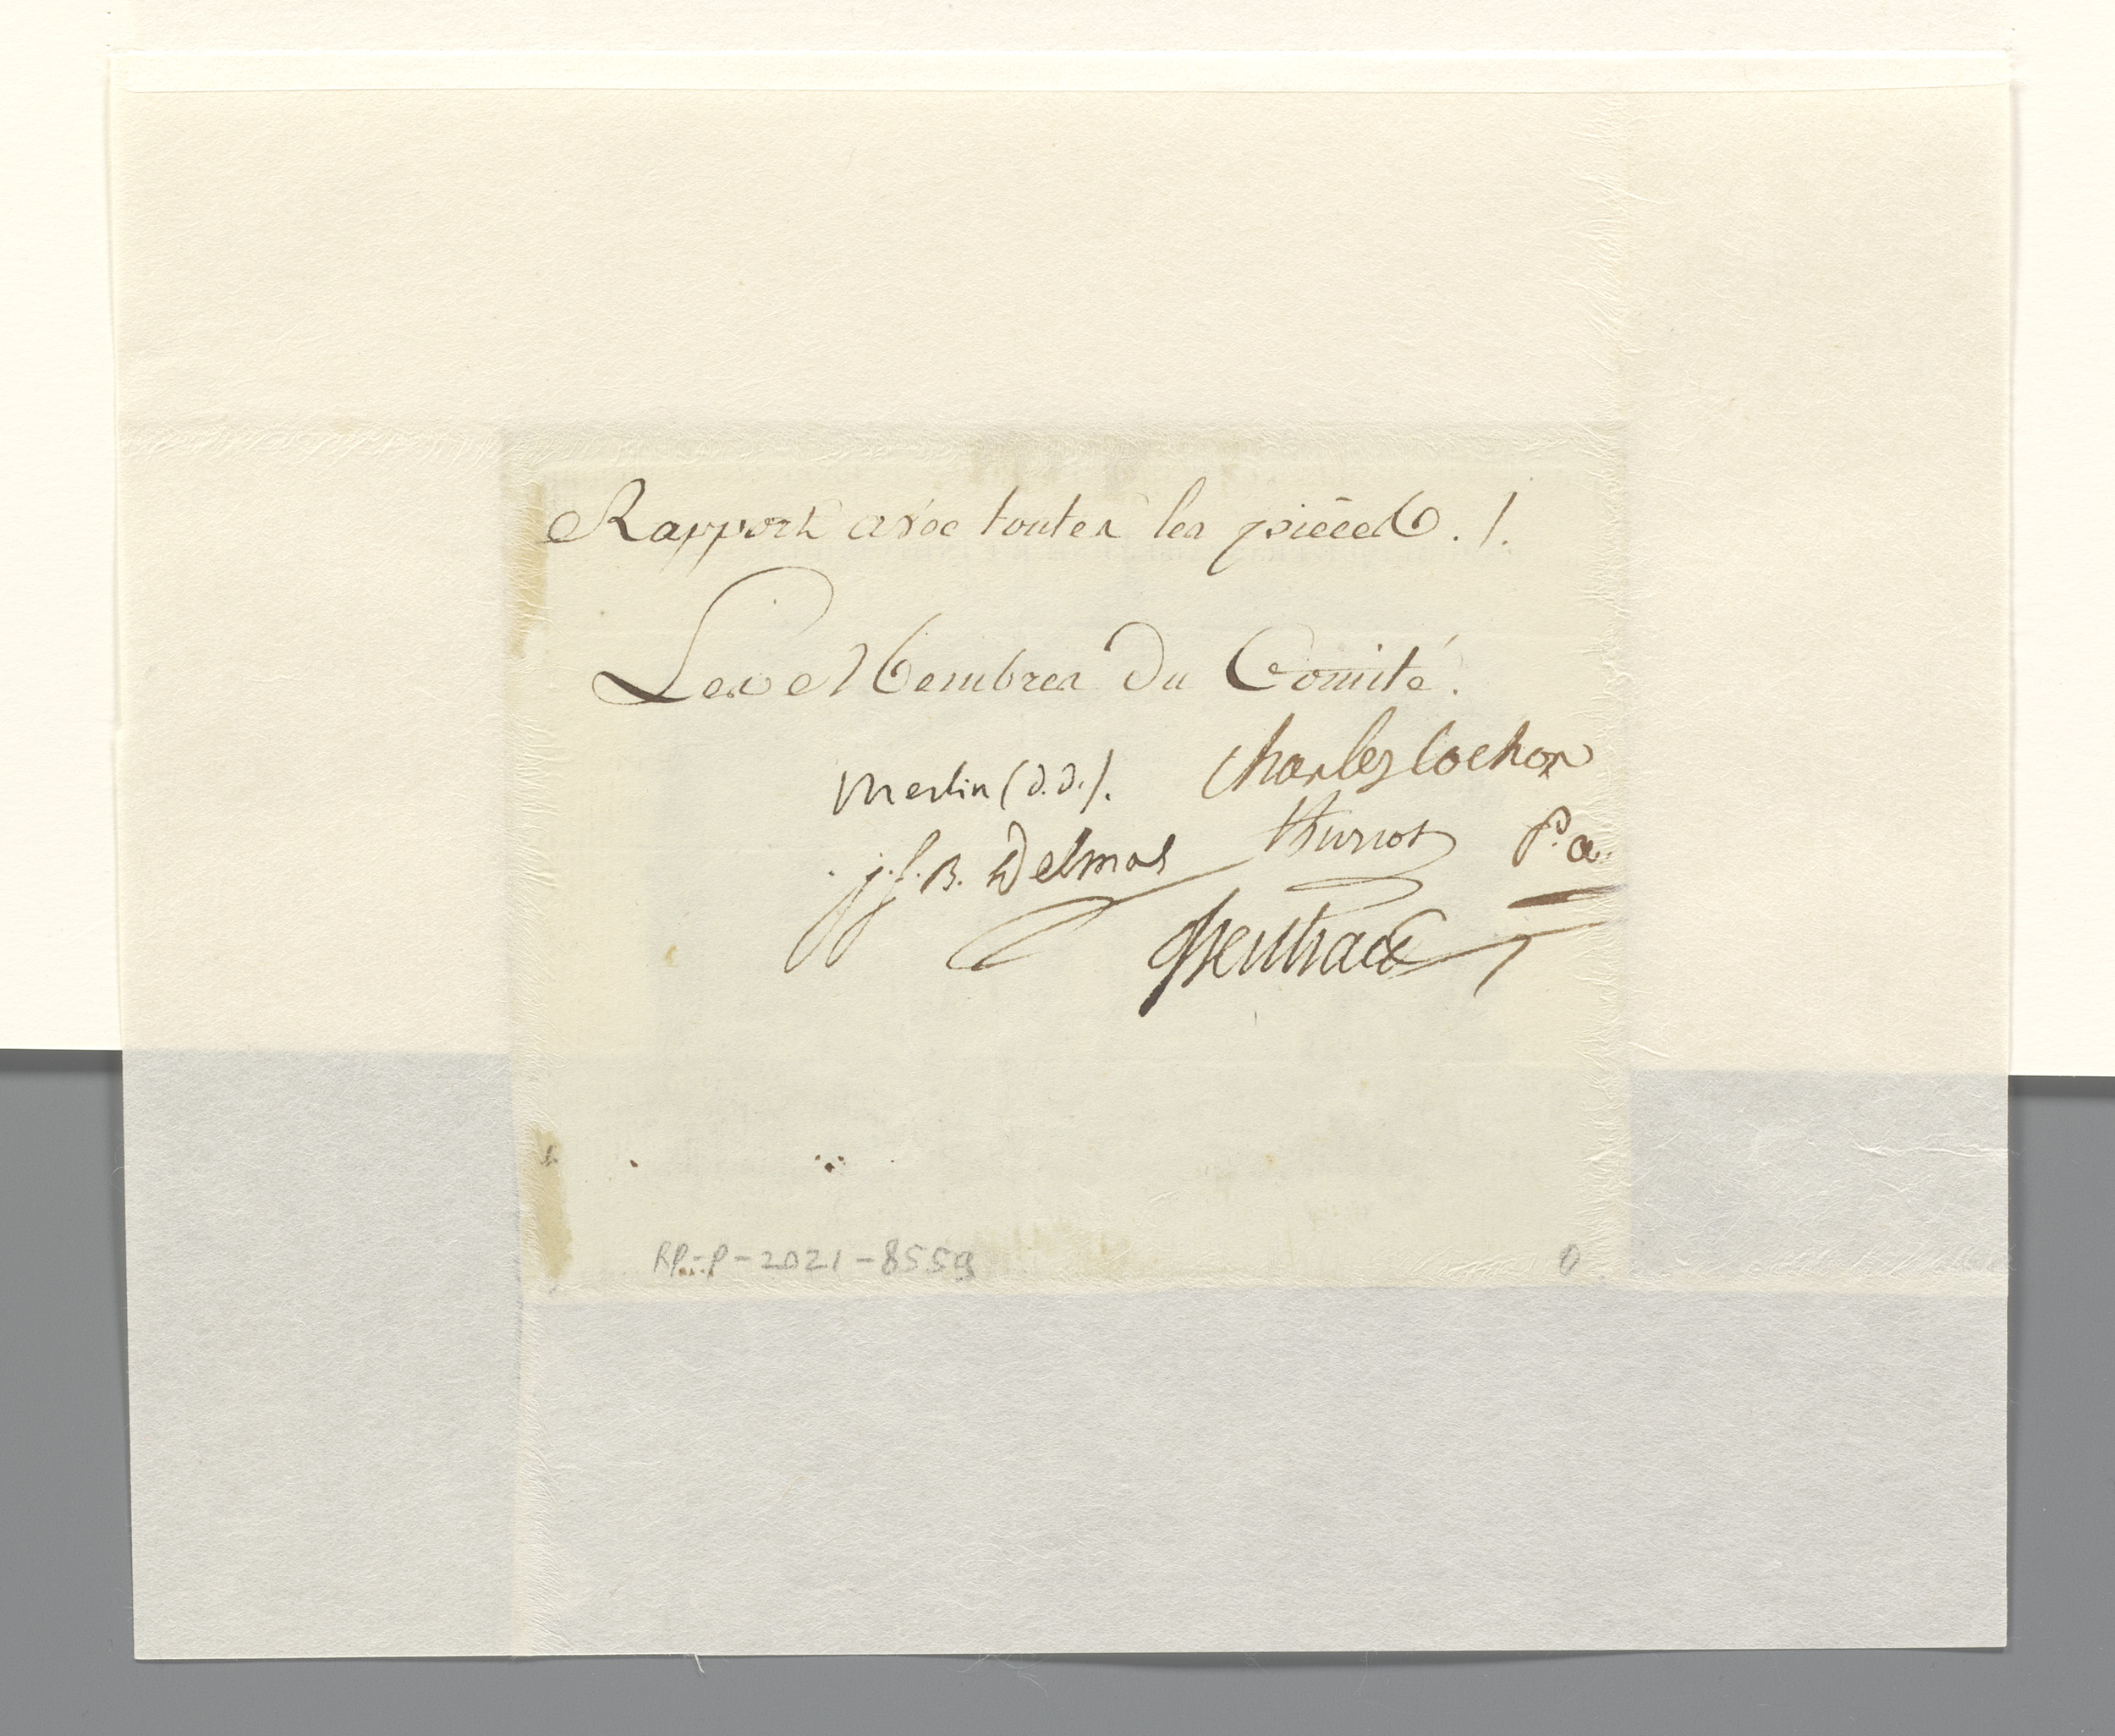 Rapport avec toutes les pièces . /.
Les Membres du Comité.
Merlin (d. d.). Charles Cochon
J. f. B. Delmas thuriot P. a.
RP-P-2021-8559
0